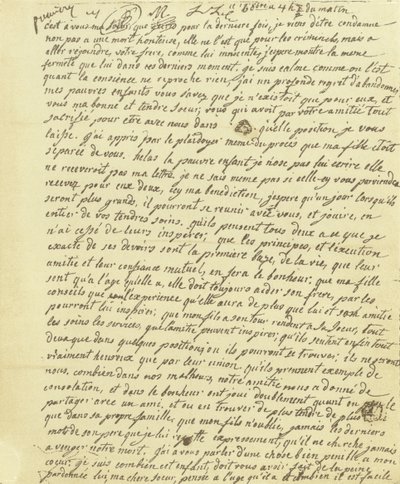 ce 16 8bre a 4 h ½ du matin
c'est a vous ma soeur, que j'ecris pour la derniere fois, je viens d'etre condamnée
non pas a une mort honteuse, elle ne l'est que pour les criminels, mais a
aller rejoindre votre frere, comme lui innocente, j'espere montrer la meme
fermeté que lui dans ces derniers moments. je suis calme comme on l'est
quand la conscience ne reproche rien, j'ai un profond regret d'abandonner
mes pauvres enfants vous savez que je n'existois que pour eux, et
vous ma bonne et tendre soeur, vous qui avez par votre amitié tout
sacrifié pour être avec nous dans quelle position je vous
laisse. j'ai appris par le plaidoyer même du procès que ma fille étoit
séparée de vous, helas la pauvre enfant je n'ose pas lui ecrire elle
ne receveroit pas ma lettre, je ne sais meme pas si celle-cy vous parviendra
recevez pour eux deux, icy ma benediction, j'espere qu'un jour lorsqu'ils
seront plus grands, il pourront se reunir avec vous, et jouire, en
entier de vos tendres soins, qu'ils pensent tous deux a ce que je
n'ai cessé de leurs inspirer, que les principes, et l'execution
exacte de ses devoirs sont la premiere base, de la vie, que leur
amitié et leur confiance mutuel, en fera le bonheur; que ma fille
sent qu'a l'age qu'elle a, elle doit toujours aider son frere, par les
conseils que l'experience qu'elle aura de plus que lui et son amitié
pourront lui inspirer; que mon fils a son tour rendent a sa soeur, tout
les soins, les services, que l'amitié peuvent inspirer; qu'ils sentent enfin tout
deux que dans quelques positions ou ils pourront se trouver; ils ne seront
vraiment heureux que par leur union, qu'ils prennent exemple de
nous. combien dans nos malheurs, notre amitié nous a donné de
consolation, et dans le bonheur on joui doublement quand on peut le
partager avec un ami, et ou en trouver de plus tendre de plus
que dans sa propre famille, que mon fils n'oublie, jamais les derniers
mots de son pere que je lui repette expressement, qu'il ne cherche jamais
a venger notre mort. j'ai a vous parler d'une chose bien penible a mon
coeur. je sais combien cet enfant, doit vous avoir fait de la peine,
pardonnez lui, ma chere soeur, pensez a l'age qu'il a et combien il est facile